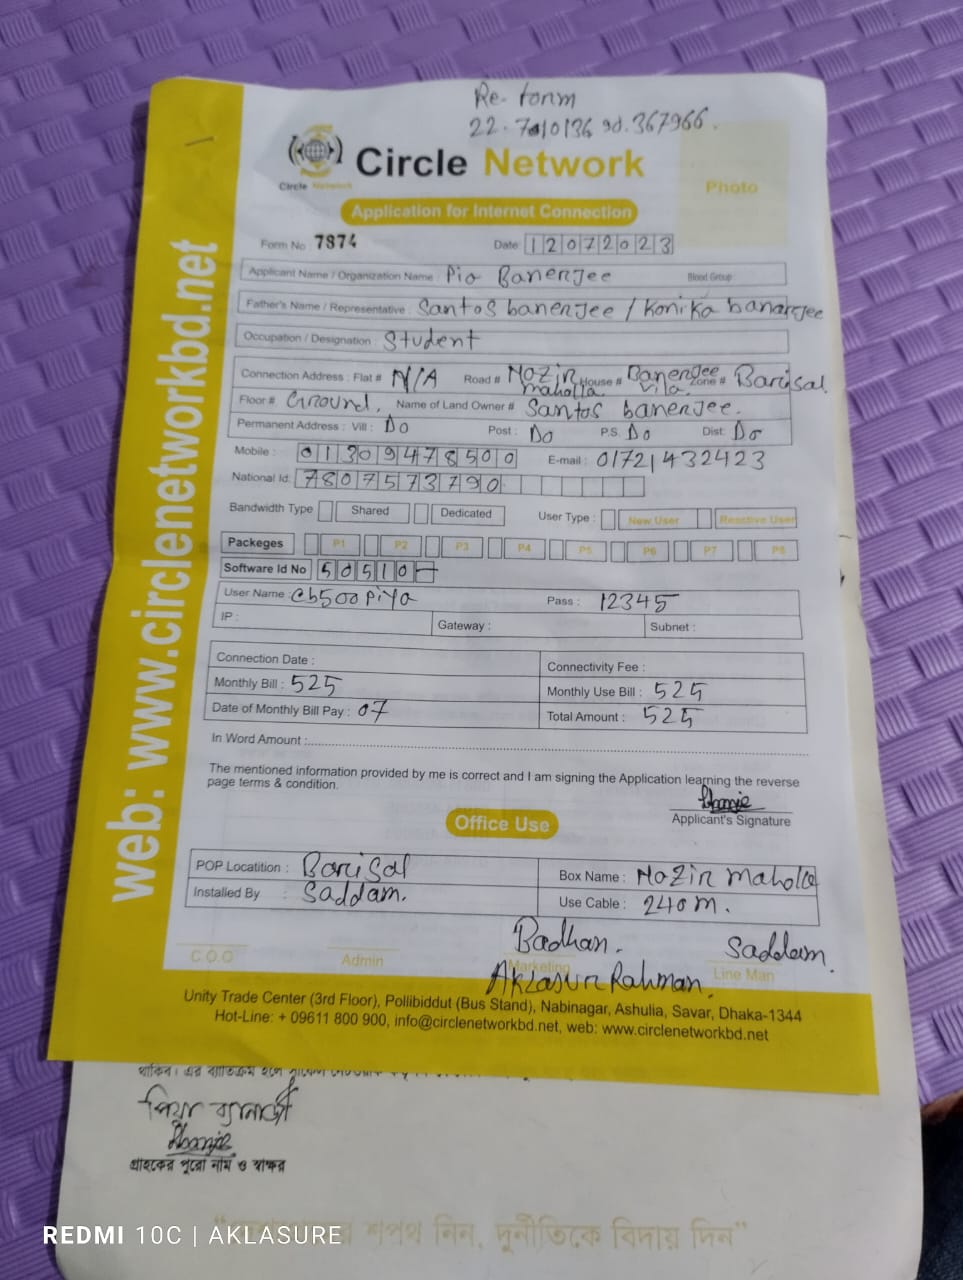 Re-form
22.7010136 90.367966.
Circle Network
Circle Network
Photo
Application for Internet Connection
Form No: 7874 Date: 12072023
Applicant Name / Organization Name: Pia Banerjee Blood Group:
Father's Name / Representative: Santos banerjee / Konika banarjee
Occupation / Designation: Student
Connection Address: Flat # N/A Road # Nozir maholla House # Banerjee vila Zone # Barisal
Floor # Ground, Name of Land Owner # Santos banerjee.
Permanent Address: Vill: Do Post: Do P.S. Do Dist: Do
Mobile: 01309478500 E-mail: 01721432423
National Id: 7807573790
Bandwidth Type Shared Dedicated User Type: New User Reactive User
Packeges P1 P2 P3 P4 P5 P6 P7 P8
Software Id No 50510
User Name: cb500piya Pass: 12345
IP: Gateway: Subnet:
Connection Date: Connectivity Fee:
Monthly Bill: 525 Monthly Use Bill: 525
Date of Monthly Bill Pay: 07 Total Amount: 525
In Word Amount:
The mentioned information provided by me is correct and I am signing the Application learning the reverse
page terms & condition.
Applicant's Signature
Office Use
POP Locatition: Barisal Box Name: Nozir maholla
Installed By: Saddam. Use Cable: 240m.
Badhan. Saddam.
C.O.O Admin Marketing Line Man
Aklasur Rahman.
Unity Trade Center (3rd Floor), Pollibiddut (Bus Stand), Nabinagar, Ashulia, Savar, Dhaka-1344
Hot-Line: + 09611 800 900, info@circlenetworkbd.net, web: www.circlenetworkbd.net
web: www.circlenetworkbd.net
পিয়া ব্যানার্জী
গ্রাহকের পুরো নাম ও স্বাক্ষর
শপথ নিন, দুর্নীতিকে বিদায় দিন"
REDMI 10C | AKLASURE